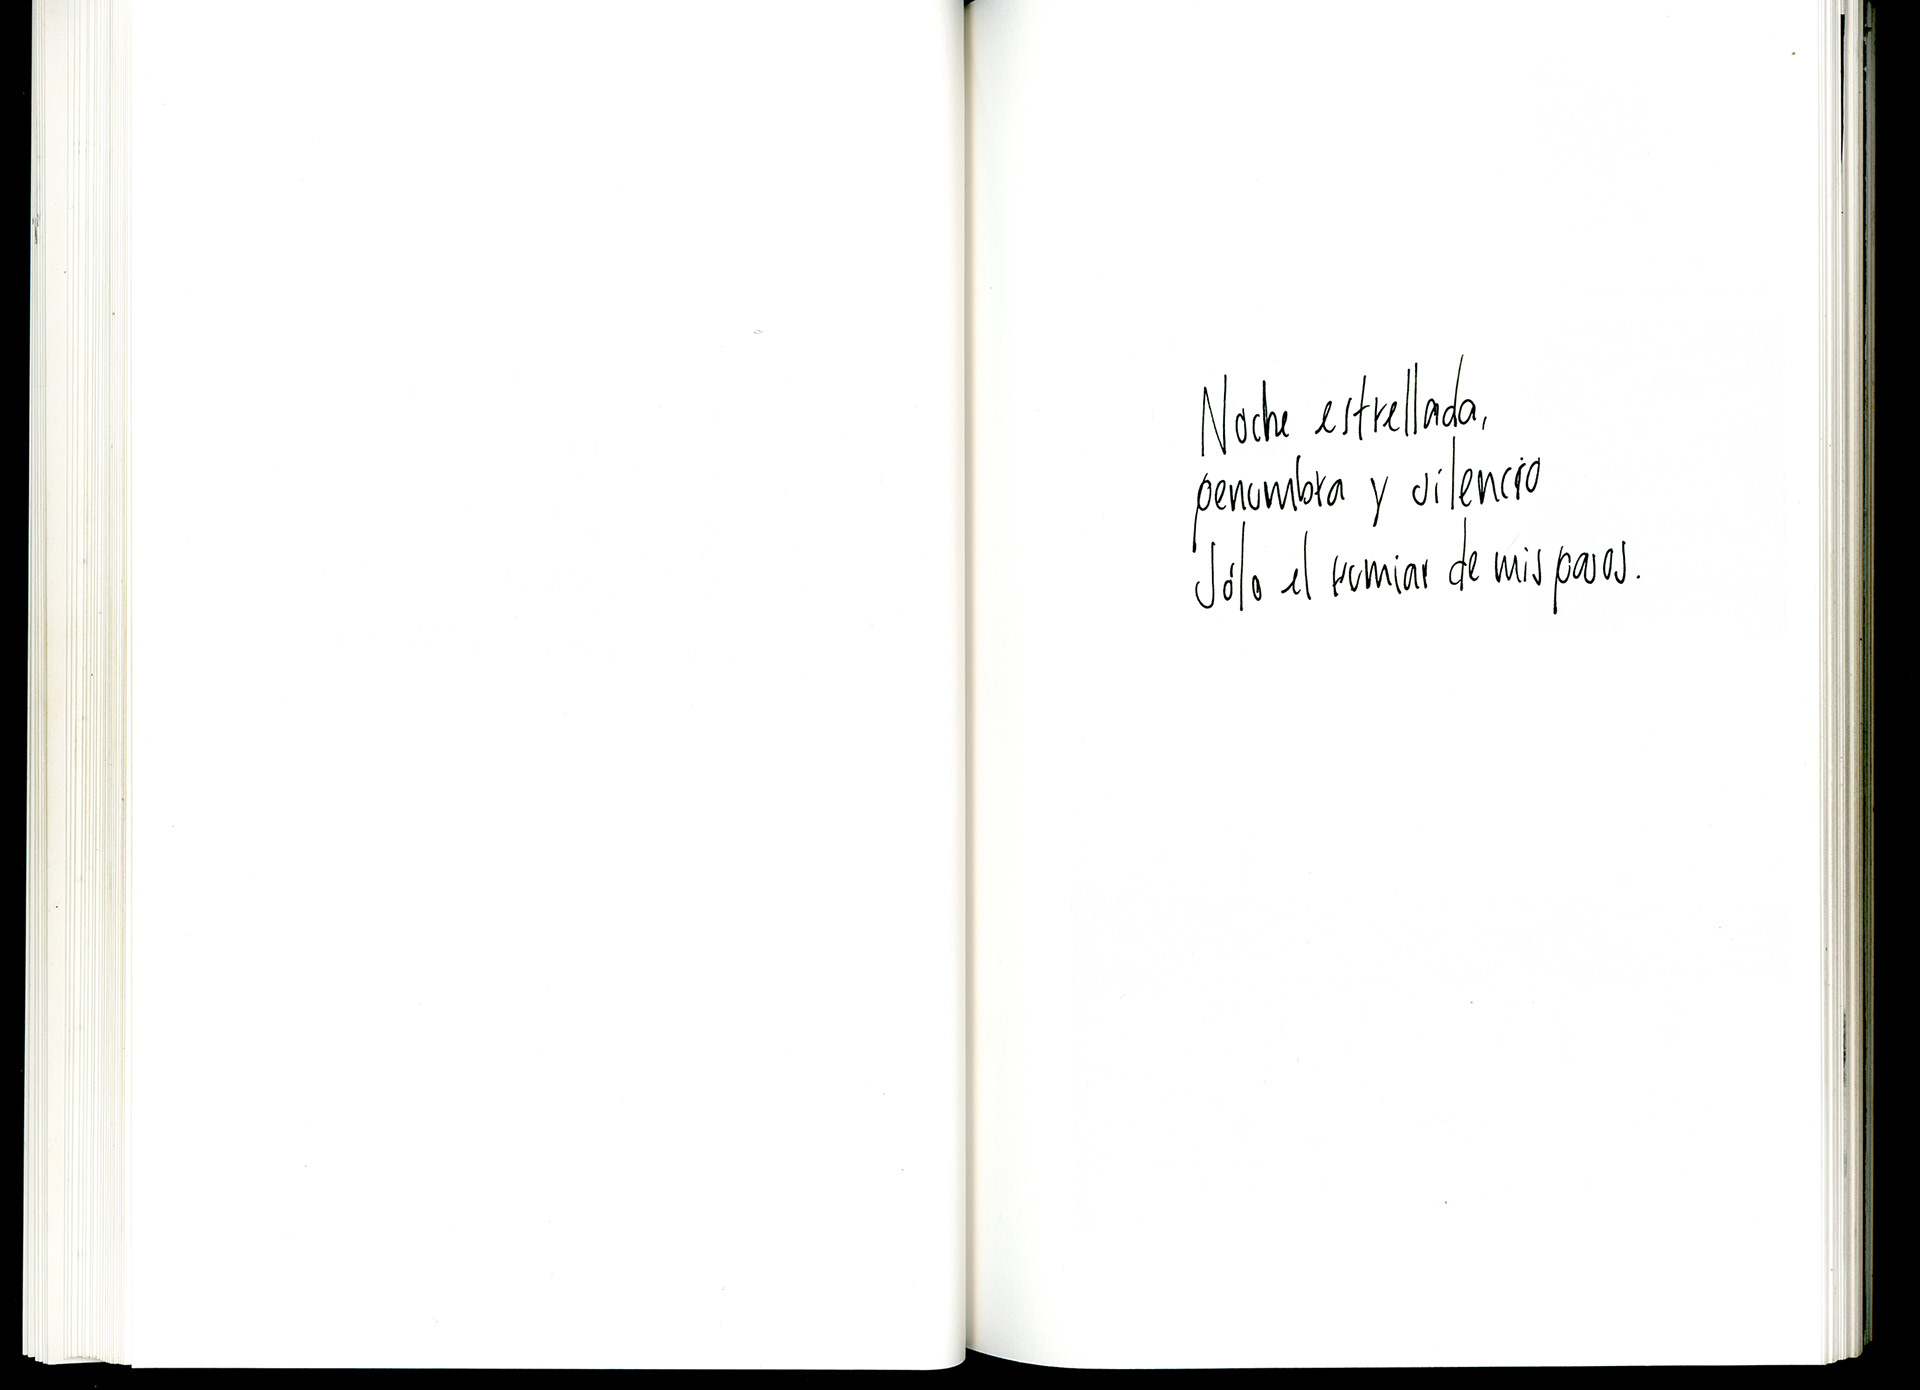 Noche estrellada,
penumbra y silencio
Sólo el rumiar de mis pasos.